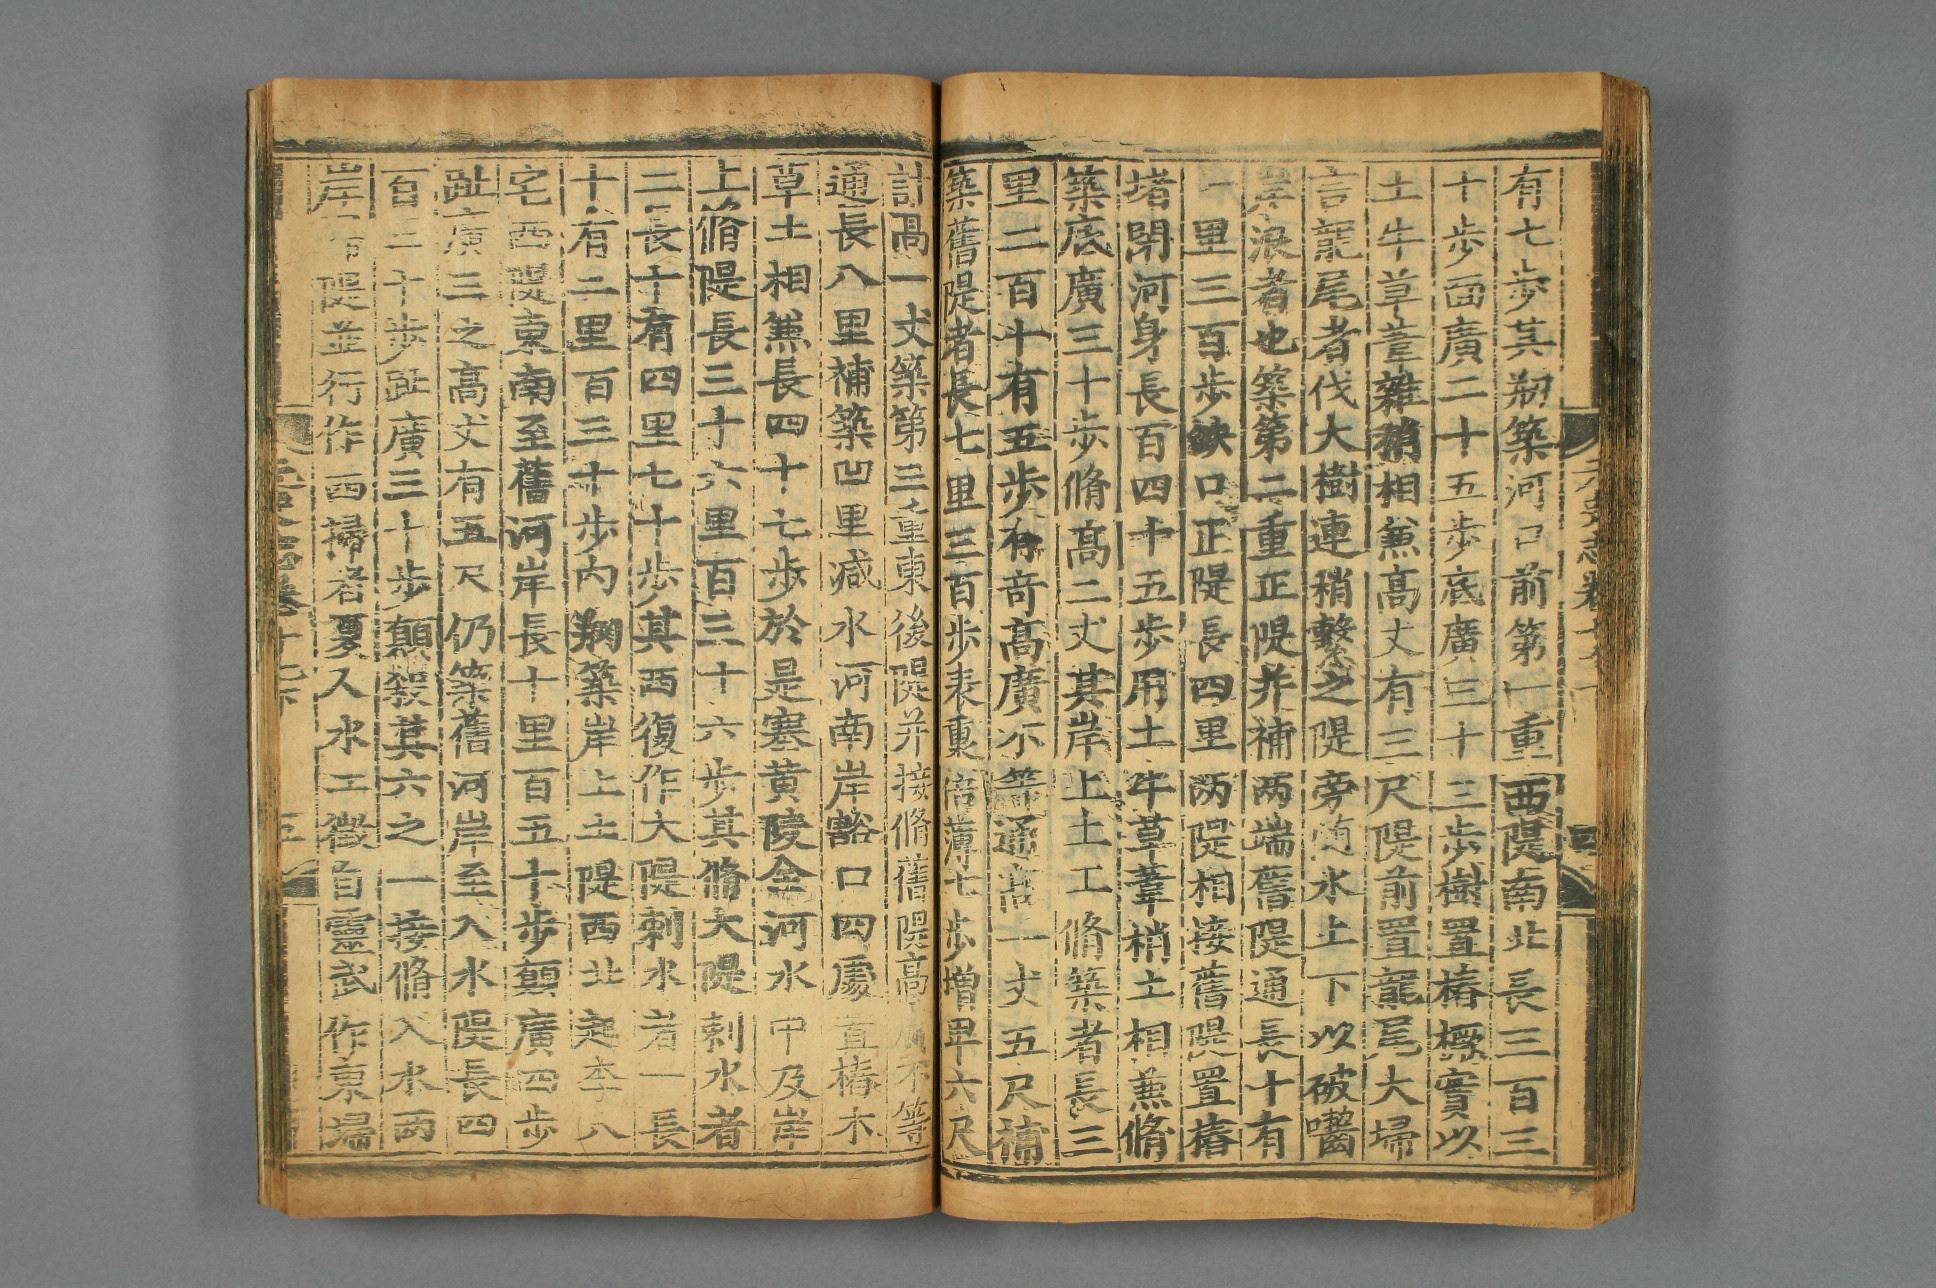 有七步其刱築河口前第一重西隄南北長三百三
十步面廣二十五步底廣三十三步樹置樁橛實以
土牛草葦雜稍相兼高丈有三尺隄前置龍尾大埽
言龍尾者伐大樹連稍繫之隄旁隨水上下以破嚙
岸浪者也築第二重正隄并補兩端舊隄通長十有
一里三百步缺口正隄長四里兩隄相接舊隄置樁
堵閉河身長百四十五步用土牛草葦梢土相兼脩
築底廣三十步脩高二丈其岸上土工脩築者長三
里二百十有五步有奇高廣不等通高一丈五尺補
築舊隄者長七里三百步表裏倍薄七步增卑六尺
計高一丈築第三重東後隄并接脩舊隄高廣不等
通長八里補築凹里减水河南岸豁口四處置樁木
草土相兼長四十七步於是塞黄陵全河水中及岸
上脩隄長三十六里百三十六步其脩大隄刺水者
二長十有四里七十步其西復作大隄刺水者一長
十有二里百三十步内刱築岸上土隄西北起李八
宅西隄東南至舊河岸長十里百五十步顛廣四步
趾廣三之高丈有五尺仍築舊河岸至入水隄長四
百三十步趾廣三十步顛殺其六之一接脩入水兩
岸埽隄並行作西埽者夏人水工徵自靈武作東埽
元史志卷十七下
五